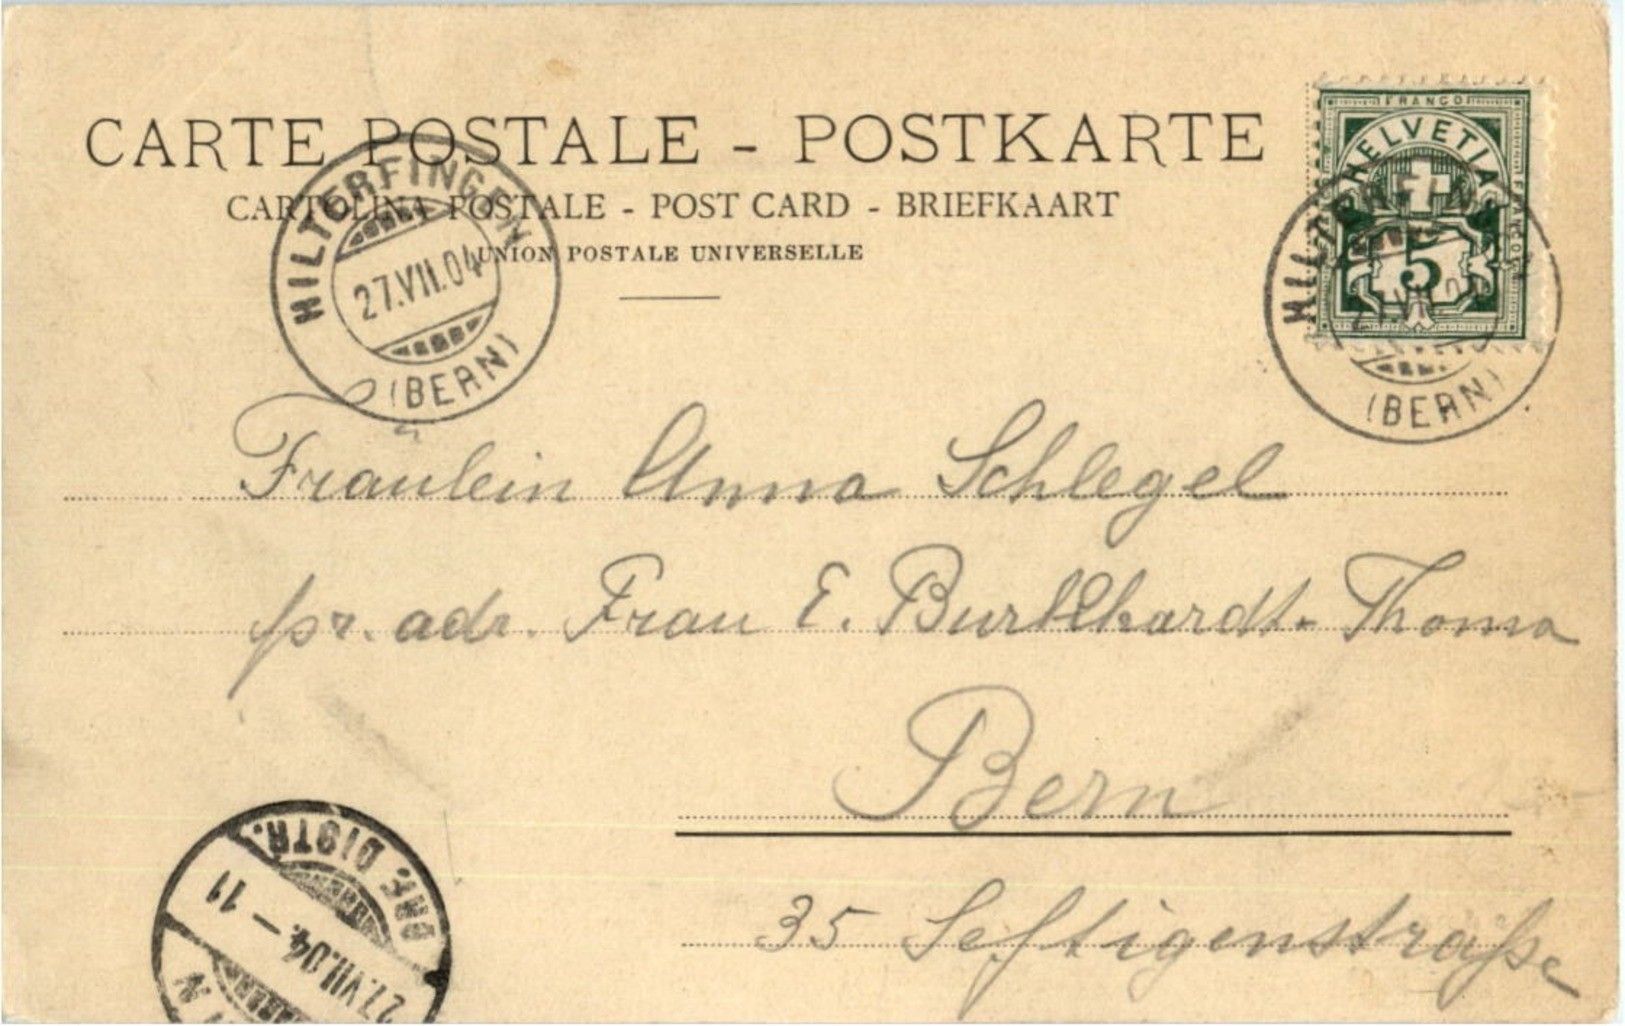 CARTE POSTALE - POSTKARTE
CARTOLINA POSTALE - POST CARD - BRIEFKAART
UNION POSTALE UNIVERSELLE
FRANCO
HELVETIA
5
HILTERFINGEN
27.VII.04
(BERN)
HILTERFINGEN
(BERN)
Fraulein Anna Schlegel
pr. adr. Frau E. Burkhardt-Thoma
Bern
35 Seftigenstraße
BRF. DISTR.
27.VII.04. - 11